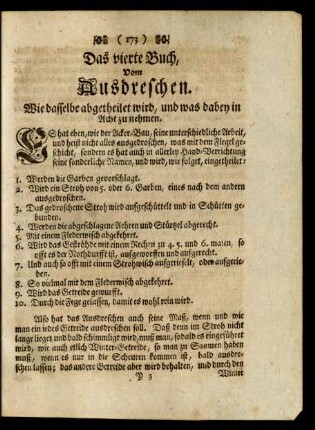 ( 173 )
Das vierte Buch,
Vom
Ausdreschen.
Wie dasselbe abgetheilet wird, und was dabey in
Acht zu nehmen.
ES hat eben, wie der Acker-Bau, seine unterschiedliche Arbeit,
und heist nicht alles ausgedroschen, was mit dem Flegel ge-
schicht, sondern es hat auch in allerley Hand-Verrichtung
seine sonderliche Namen, und wird, wie folget, eingetheilet:
1. Werden die Garben gevorschlagt.
2. Wird ein Stroh von 5. oder 6. Garben, eines nach dem andern
ausgedroschen.
3. Das gedroschene Stroh wird aufgeschüttelt und in Schütten ge-
bunden.
4. Werden die abgeschlagene Aehren und Stürzel abgerecht.
5. Mit einem Flederwisch abgekehret.
6. Wird das Geströhde mit einem Rechen zu 4. 5. und 6. malen, so
offt es der Nothdurfft ist, aufgeworffen und aufgerecht.
7. Und auch so offt mit einem Strohwisch aufgerieselt, oder aufgetrie-
ben.
8. So vielmal mit dem Flederwisch abgekehret.
9. Wird das Getreide geworfft.
10. Durch die Fege gelassen, damit es wohl rein wird.
Also hat das Ausdreschen auch seine Maß, wenn und wie
man ein jedes Getreide ausdreschen soll. Daß denn im Stroh nicht
lange lieget und bald schimmligt wird, muß man, sobald es eingeführet
wird, wie auch etlich Winter-Getreide, so man zu Saamen haben
muß, wenn es nur in die Scheuren kommen ist, bald ausdre-
schen lassen; das andere Getreide aber wird behalten, und durch den
P 3 Winter